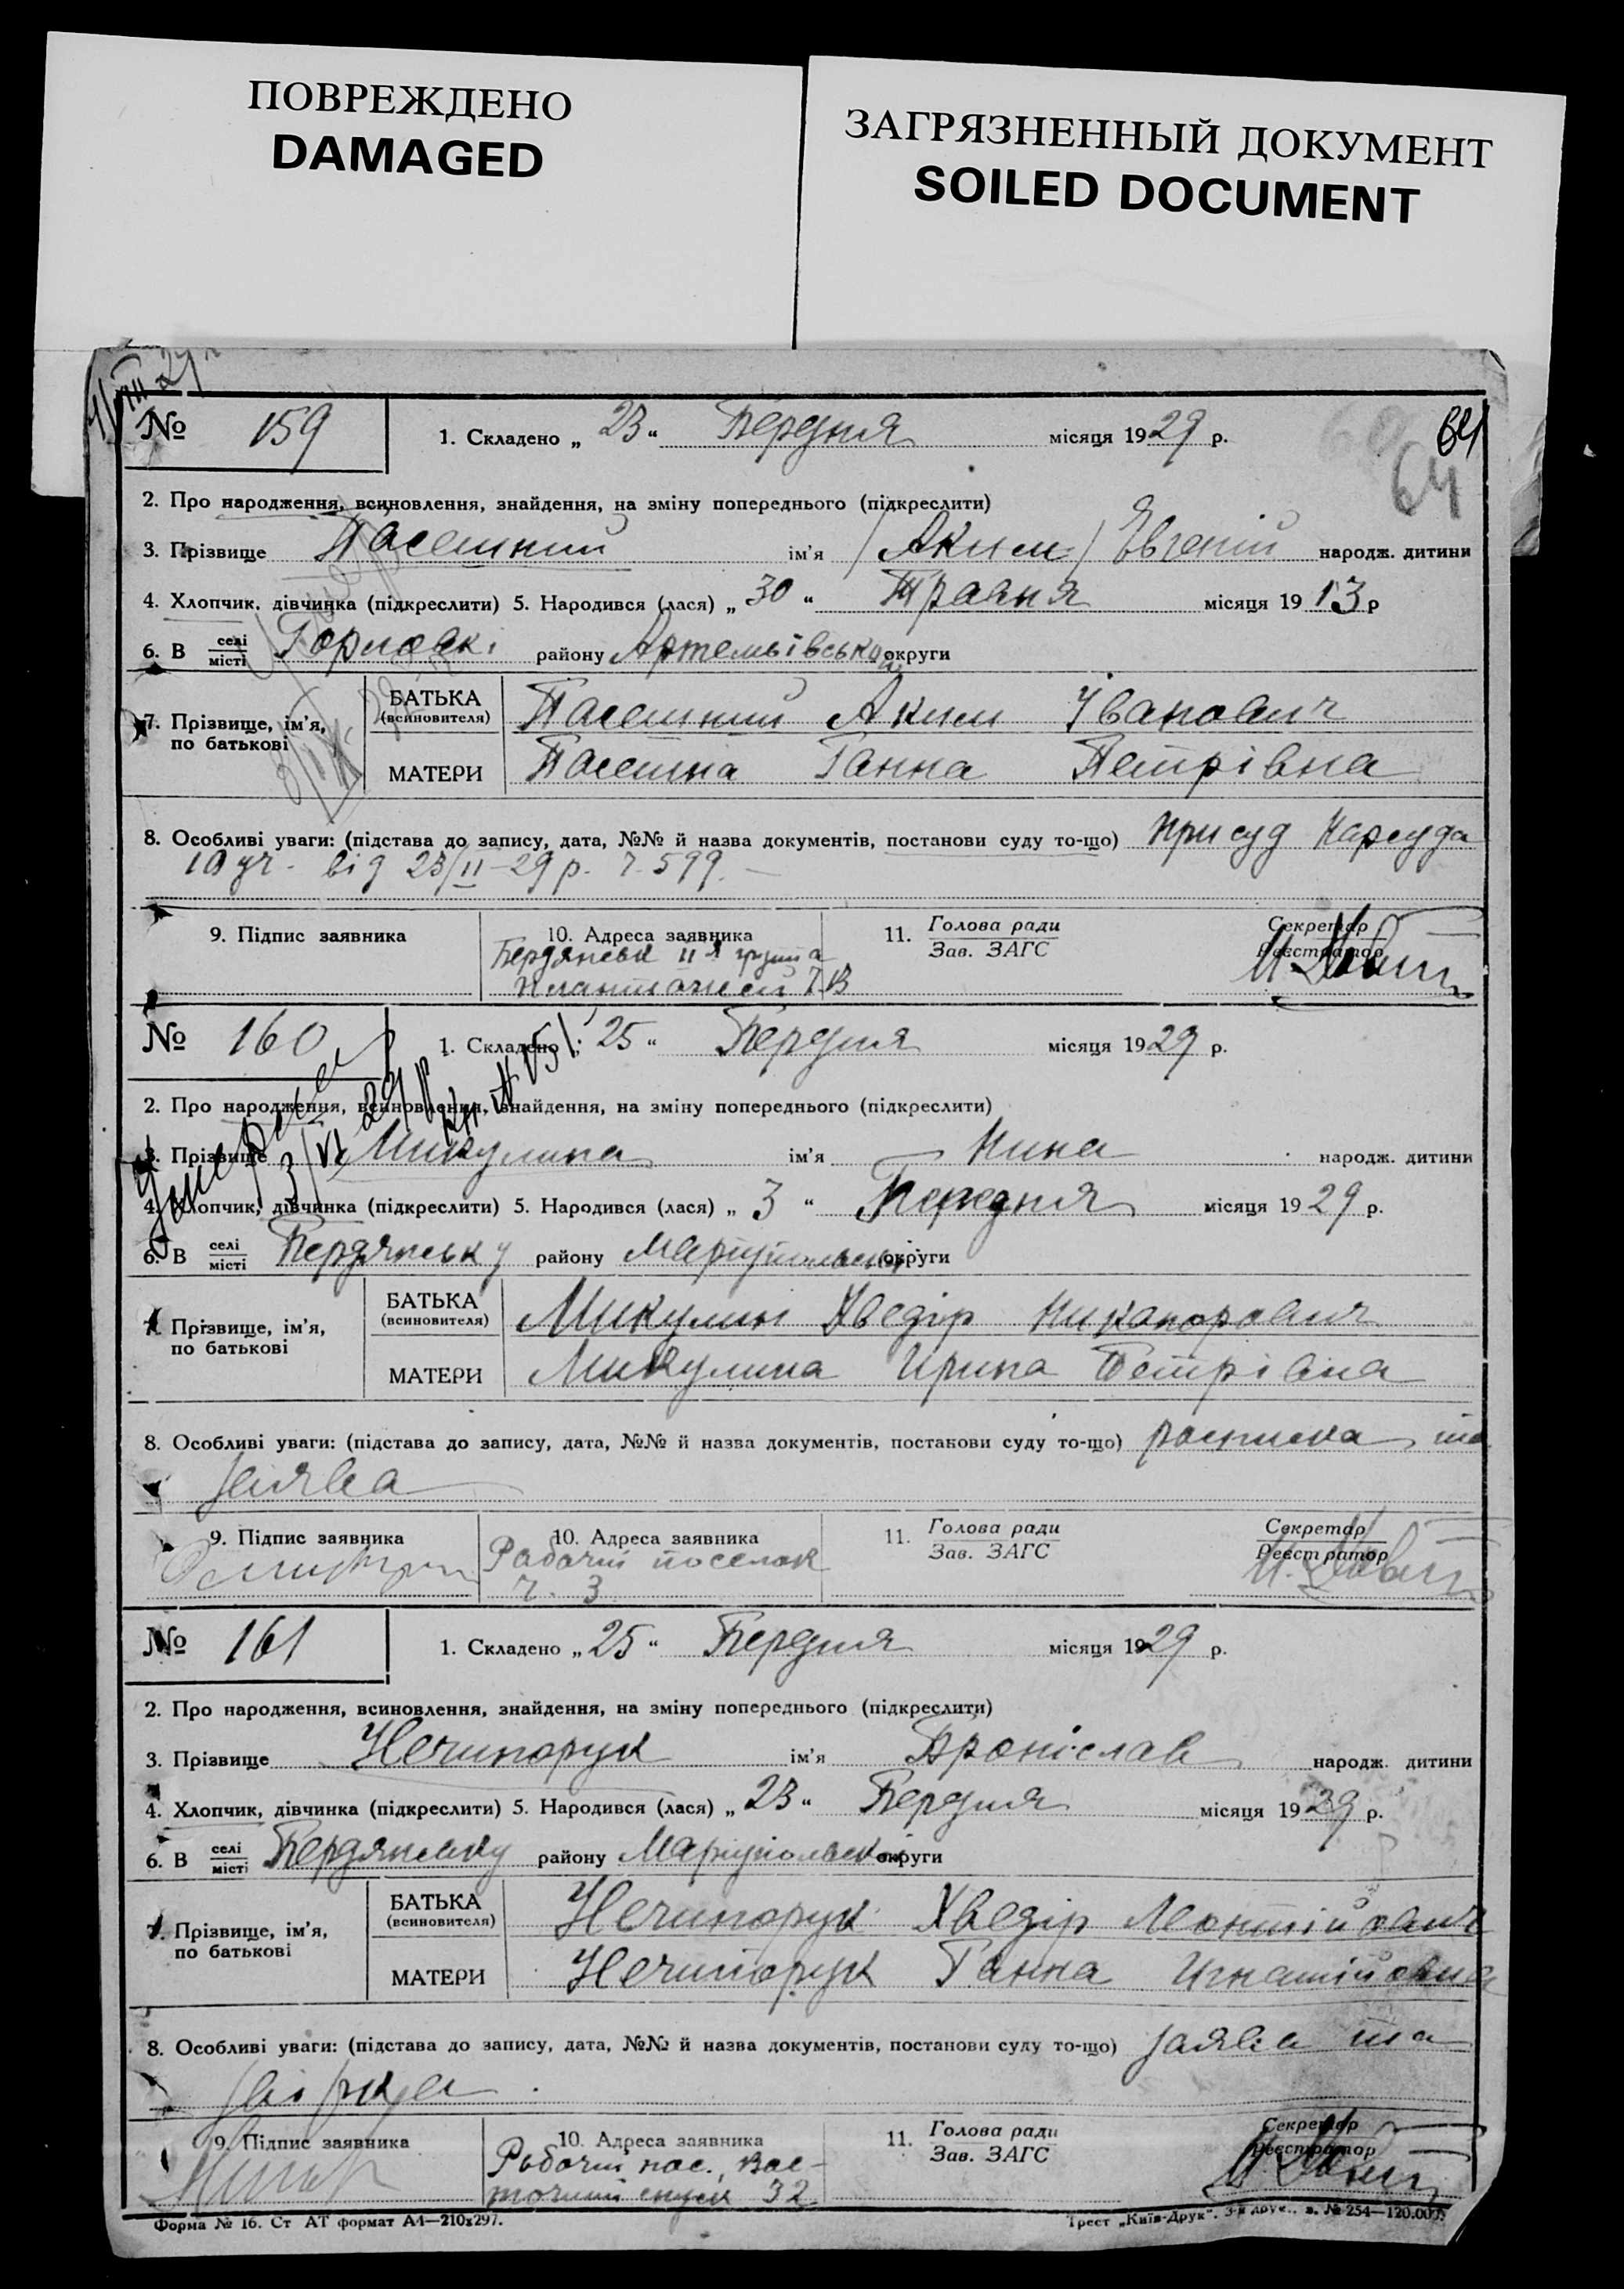 ПОВРЕЖДЕНО
DAMAGED
ЗАГРЯЗНЕННЫЙ ДОКУМЕНТ
SOILED DOCUMENT
64
64
№ 159
1. Складено „ 23 “ Березня місяця 1929 р.
2. Про народження, всиновлення, знайдення, на зміну попереднього (підкреслити)
3. Прізвище ім'я /Аким/ Євгеній народж. дитини
4. Хлопчик, дівчинка (підкреслити) 5. Народився (лася) „ 30 “ Травня місяця 1913 р
6. В селі місті Горловкі району Артемьівської округи
7. Прізвище, ім'я, по батькові
БАТЬКА (всиновителя) Аким Іванович
МАТЕРИ Ганна Петрівна
8. Особливі уваги: (підстава до запису, дата, №№ й назва документів, постанови суду то-що) присуд Нарсуда
10 уч. від 23/II-29 р. ч. 599.
9. Підпис заявника
10. Адреса заявника
Бердянськ II я
11. Голова ради
Зав. ЗАГС
Секретар
Реєстратор
№ 160
1. Складено „ 25 “ Березня місяця 1929 р.
2. Про народження, всиновлення, знайдення, на зміну попереднього (підкреслити)
3. Прізвище Микулина ім'я Нина народж. дитини
4. Хлопчик, дівчинка (підкреслити) 5. Народився (лася) „ 3 “ Березня місяця 1929 р.
6. В селі місті Бердянську району Маріупольськ округи
7. Прізвище, ім'я, по батькові
БАТЬКА (всиновителя) Микулин Хведір Никанорович
МАТЕРИ Микулина Ирина Петрівна
8. Особливі уваги: (підстава до запису, дата, №№ й назва документів, постанови суду то-що) росписка та
заява
9. Підпис заявника
10. Адреса заявника
Рабочий поселок
ч. 3
11. Голова ради
Зав. ЗАГС
Секретар
Реєстратор
№ 161
1. Складено „ 25 “ Березня місяця 1929 р.
2. Про народження, всиновлення, знайдення, на зміну попереднього (підкреслити)
3. Прізвище Нечипорук ім'я Броніслав народж. дитини
4. Хлопчик, дівчинка (підкреслити) 5. Народився (лася) „ 23 “ Березня місяця 1929 р.
6. В селі місті Бердянську району Маріупольськ округи
7. Прізвище, ім'я, по батькові
БАТЬКА (всиновителя) Нечипорук Хведір Леонтійович
МАТЕРИ Нечипорук Ганна Игнатійовна
8. Особливі уваги: (підстава до запису, дата, №№ й назва документів, постанови суду то-що) заява та
9. Підпис заявника
10. Адреса заявника
Рабочий пос., Вос-
точний спуск 32
11. Голова ради
Зав. ЗАГС
Секретар
Реєстратор
Форма № 16. Ст АТ формат А4—210x297.
Трест „Київ-Друк“. 3-я друк., з. № 254—120.000.